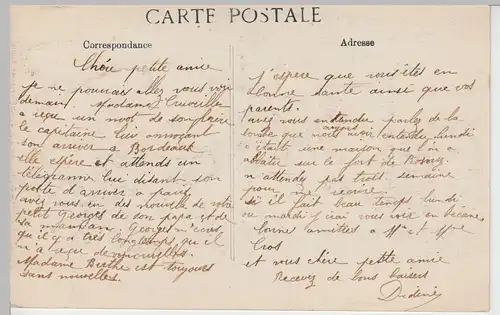 CARTE POSTALE
Correspondance
Adresse
Chère petite amie
je ne pourrais allez vous voir
demain Madame
a reçu un mot de son frère
le capitaine lui annonçant
son arrivé a Bordeaux
elle espère et attends un
télégramme lui disant son
arrivé a paris
avez vous eu des nouvelle de votre
petit Georges de son papa et de
sa maman, Georges
qu'il y a très longtemps qu'il
n'a reçue de nouvelles
Madame Berthe est toujours
sans nouvelles.
j'espère que vous êtes en
bonne sante ainsi que vos
parents.
avez vous entendu parlez de la
bombe que nous avons entendu, lundi
c'était une maison que l'on a
sur le fort de Rosny.
n'attendez pas trois semaine
pour me ecrire
si il fait beau temps lundi
ou mardi j'irai vous voir en bécane
bonne amitiées a Mr et Mme
Cros
et vous chère petite amie
Recevez de bons baisers